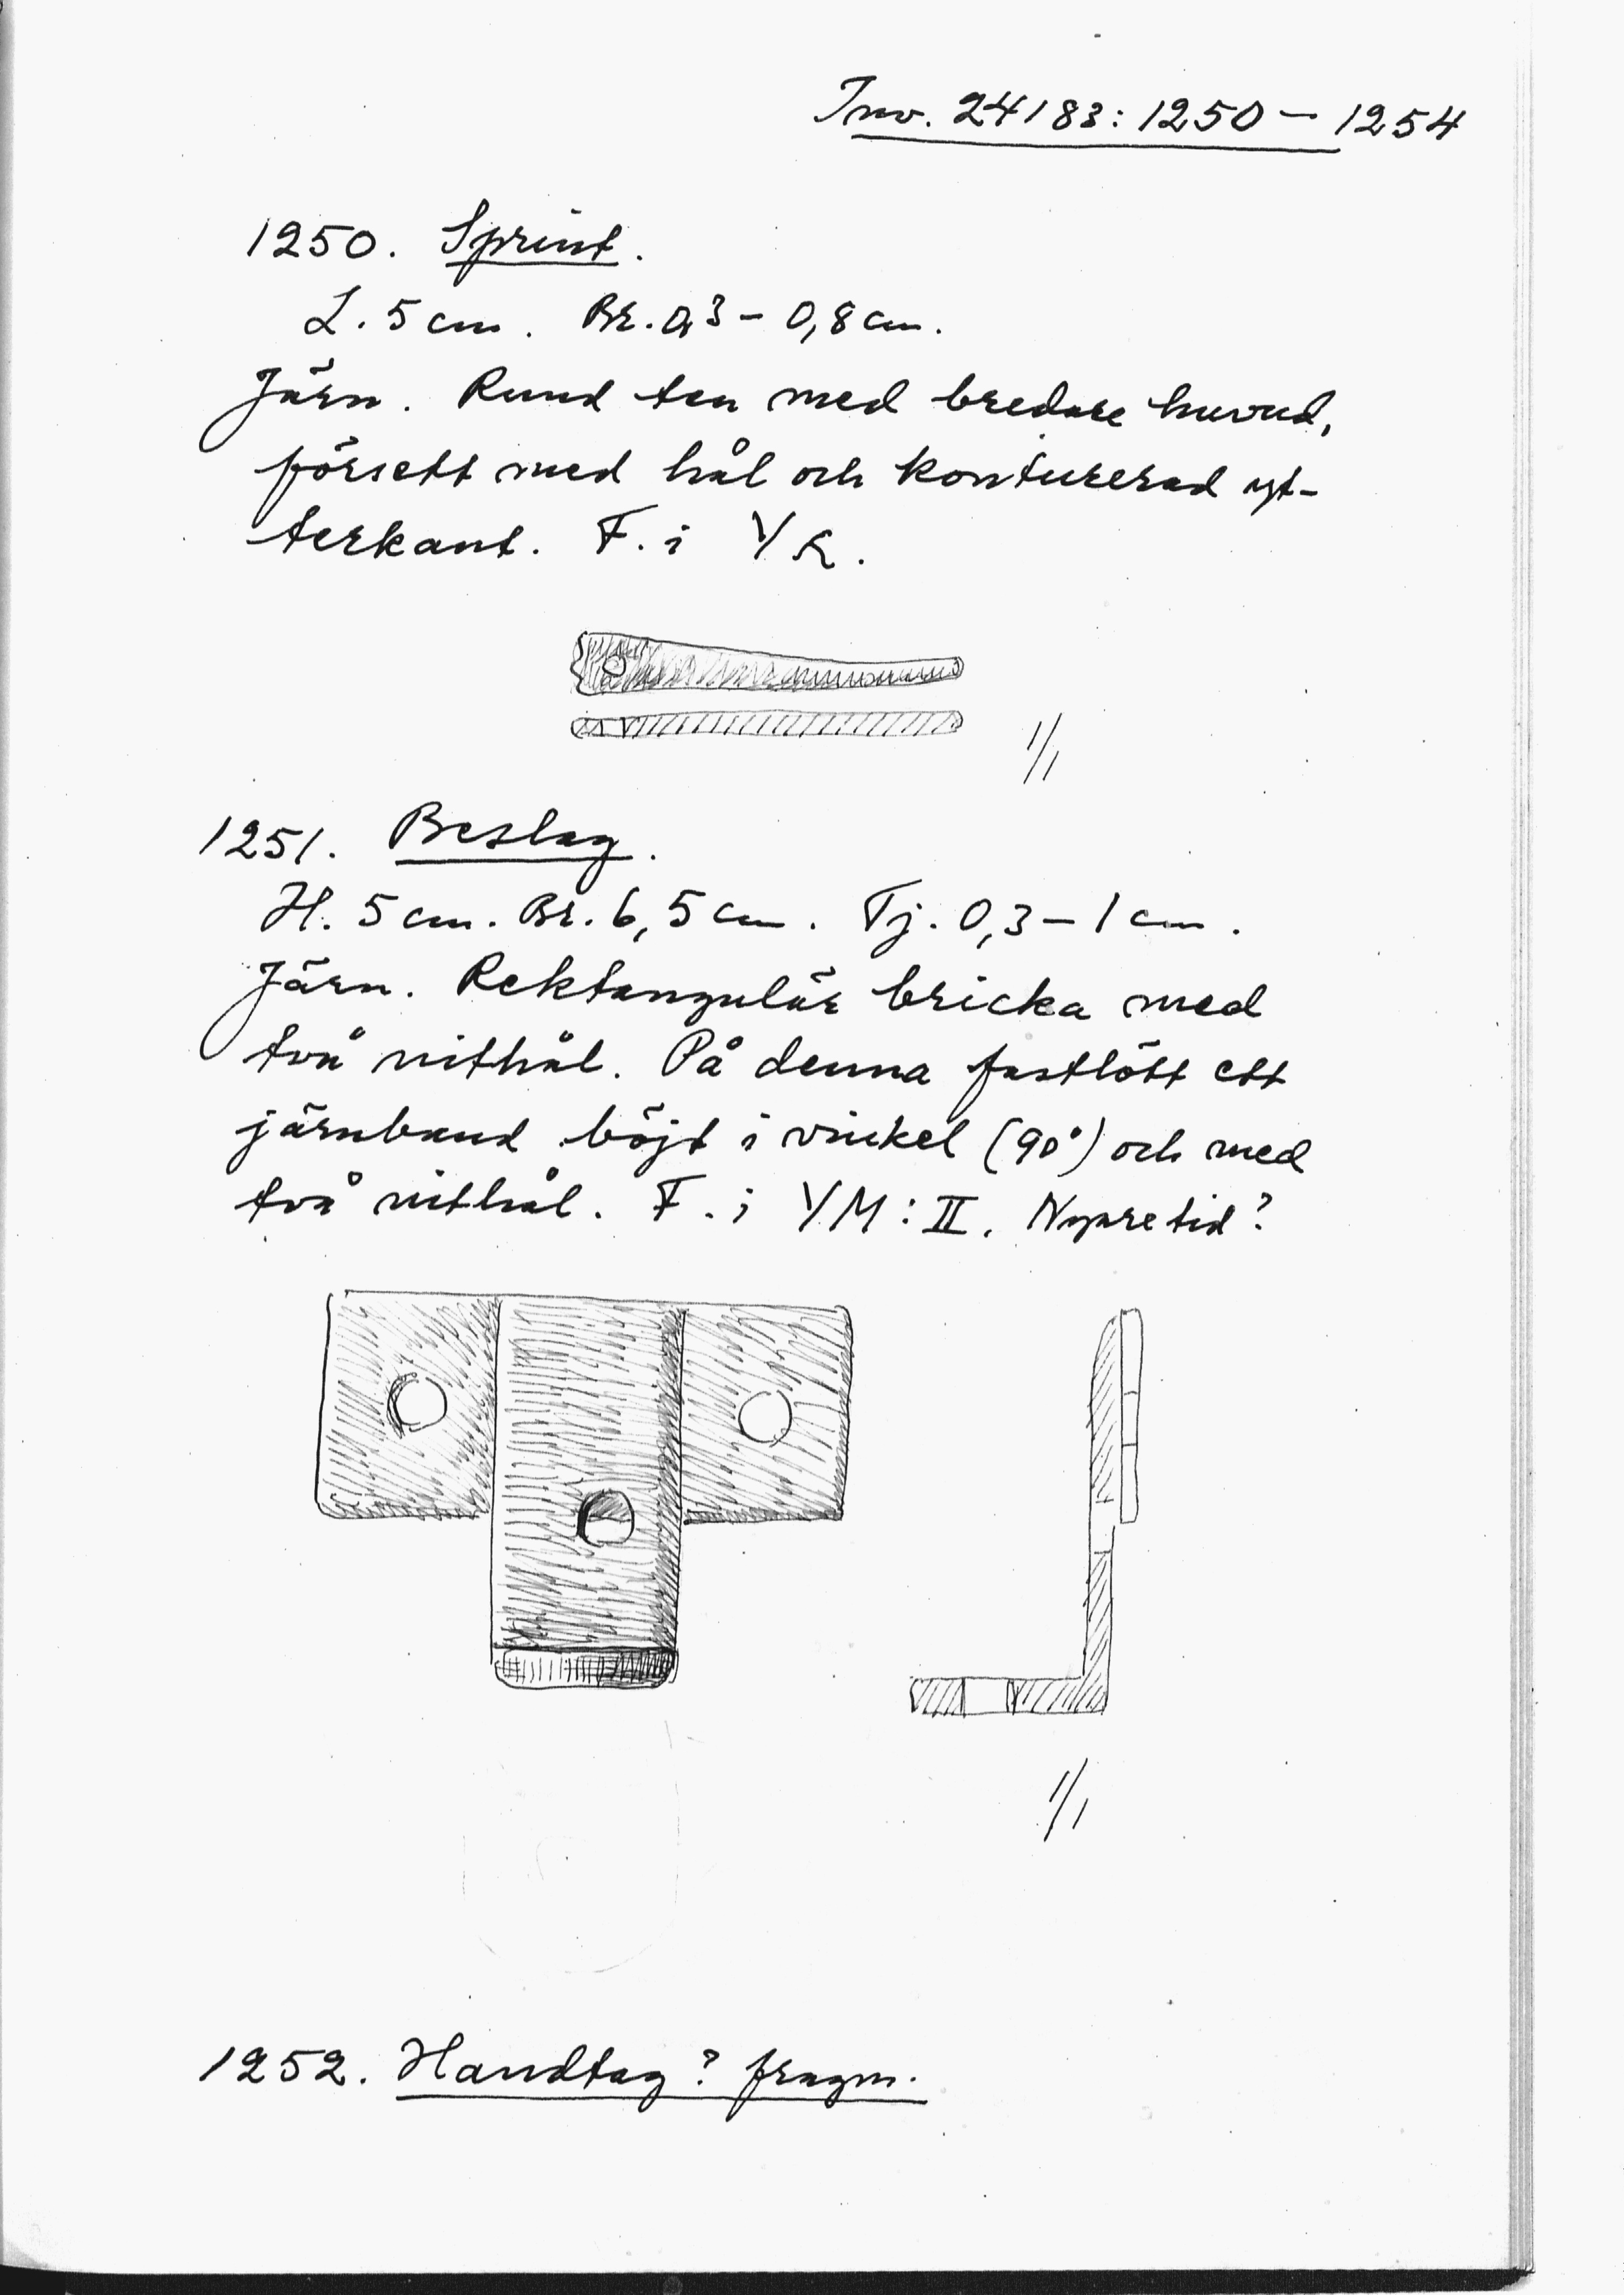 Inv. 24183:1250-1254
1250. Sprint.
L. 5 cm. Br. 0,3 - 0,8 cm.
Järn. Rund ten med bredare huvud,
försett med hål och konturerad yt-
terkant. F. i YK.
1/1
1251. Beslag.
H. 5 cm. Br. 6,5 cm. Tj. 0,3-1 cm.
Järn. Rektangulär bricka med
två nithål. På denna fastlött ett
järnband böjt i vinkel (90°) och med
två nithål. F. i YM:II. Nyare tid?
1/1
1252. Handtag? fragm.